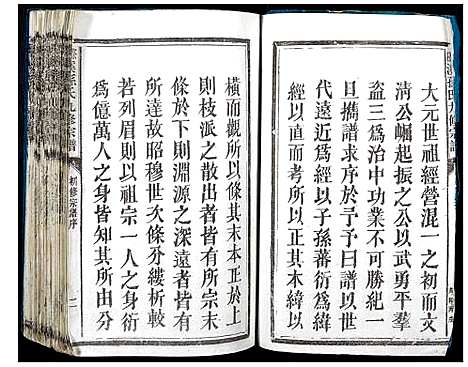 大元世祖經營混一之初而文
清公崛起振之公以武勇平羣
盜三爲治中功業不可勝紀一
日攜譜求序於予予曰譜以世
代遠近爲經以子孫蕃衍爲緯
經以直而考所以其本緯以
橫而觀所以條其末本正於上
則枝派之散出者皆有所宗末
有條則淵源之深遠者皆有
所發故昭穆世次條分縷析較
若列眉則以祖宗一人之身衍
爲億萬人之身皆知其所由分
九修宗譜
初修宗譜序
二